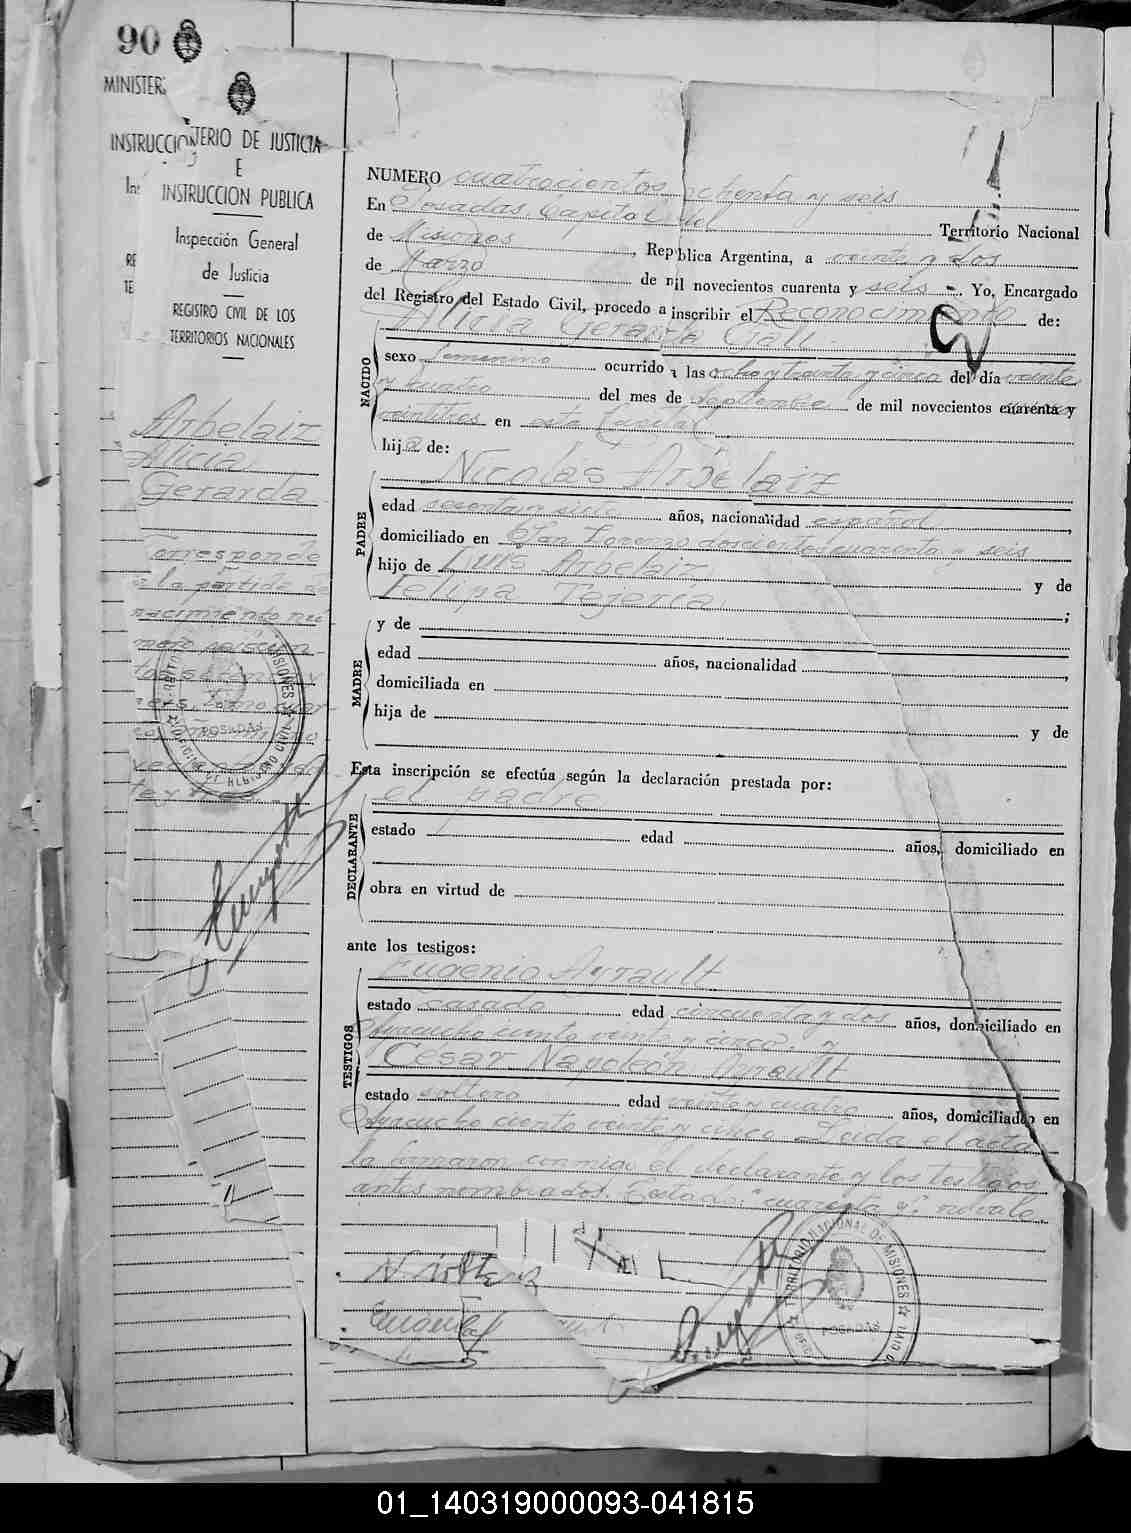 90
MINISTER
MINISTERIO DE JUSTICIA
INSTRUCCION
E
INSTRUCCION PUBLICA
Inspección General
de Justicia
REGISTRO CIVIL DE LOS
TERRITORIOS NACIONALES
Arbelaiz
Alicia
Gerarda
Corresponde
a la partida de
nacimiento nu
NUMERO cuatrocientos ochenta y seis
En Posadas, Capital del Territorio Nacional
de Misiones, República Argentina, a veinte y dos
de Marzo de mil novecientos cuarenta y seis. Yo, Encargado
del Registro del Estado Civil, procedo a inscribir el Reconocimiento de:
NACIDO
Alicia Gerarda Gall
sexo femenino ocurrido a las ocho y treinta y cinco del día veinte
y cuatro del mes de septiembre de mil novecientos cuarenta y
veintitres en esta Capital
hija de:
PADRE
Nicolás Arbelaiz
edad sesenta y siete años, nacionalidad español,
domiciliado en San Lorenzo doscientos cuarenta y seis
hijo de Luis Arbelaiz y de
Felipa Tejeria;
MADRE
y de
edad años, nacionalidad,
domiciliada en
hija de y de
Esta inscripción se efectúa según la declaración prestada por:
DECLARANTE
el padre
estado edad años, domiciliado en
obra en virtud de
ante los testigos:
TESTIGOS
Eugenio Ayrault
estado casado edad cincuenta y dos años, domiciliado en
Ayacucho ciento veinte y cinco y
Cesar Napoleón Ayrault
estado soltero edad veinte y cuatro años, domiciliado en
Ayacucho ciento veinte y cinco. Leida el acta
la firmaron conmigo el declarante y los testigos
antes nombrados. Testado: "cuarenta y" no vale.
TERRITORIO NACIONAL DE MISIONES
POSADAS
01_140319000093-041815